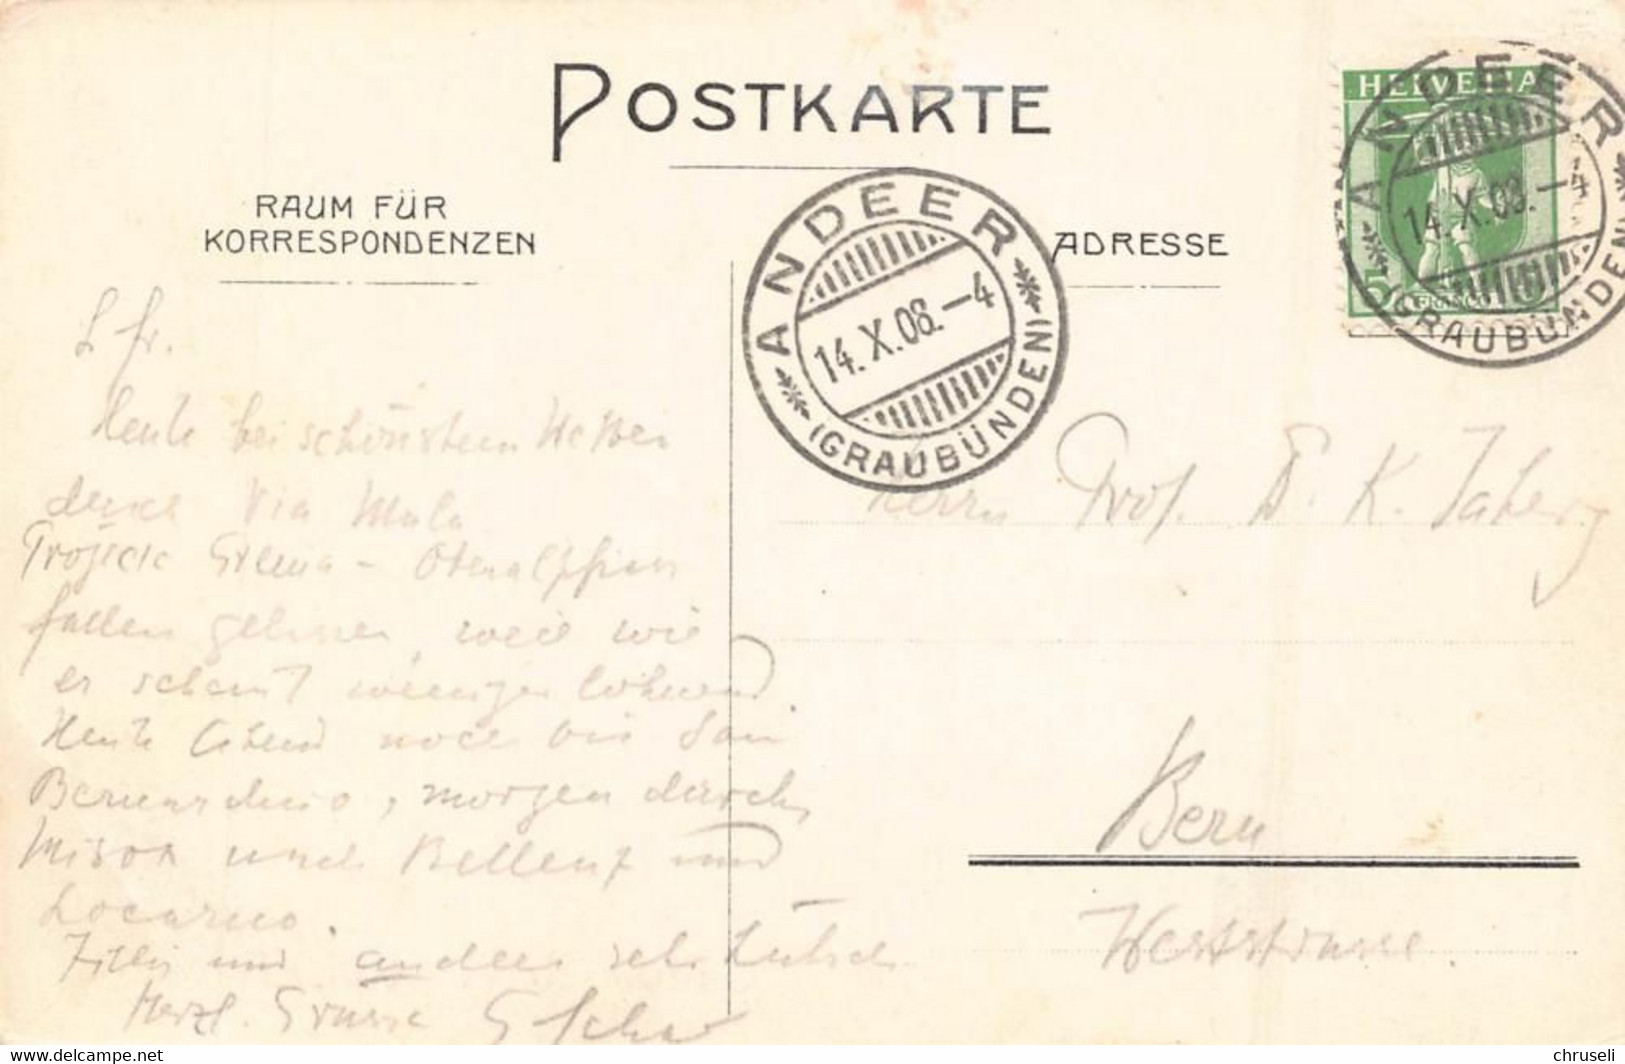 POSTKARTE
RAUM FÜR
KORRESPONDENZEN
ADRESSE
HELVETIA
5 FRANCO
ANDEER
14.X.08.–4
(GRAUBÜNDEN)
ANDEER
14.X.08.–4
(GRAUBÜNDEN)
L. Fr.
Heute bei schönstem Wetter
durch Via Mala
Projekt Greina – Oberalp
fallen gelassen, weil wie
es scheint weniger lohnend.
Heute Abend noch bis San
Bernardino, morgen durch
Misox nach Bellenz und
Locarno.
Zillis und Andeer sehr hübsch
Herzl. Grüsse
Herrn Prof. Dr. K. Jaberg
Bern
Weststrasse.
chruseli
www.delcampe.net